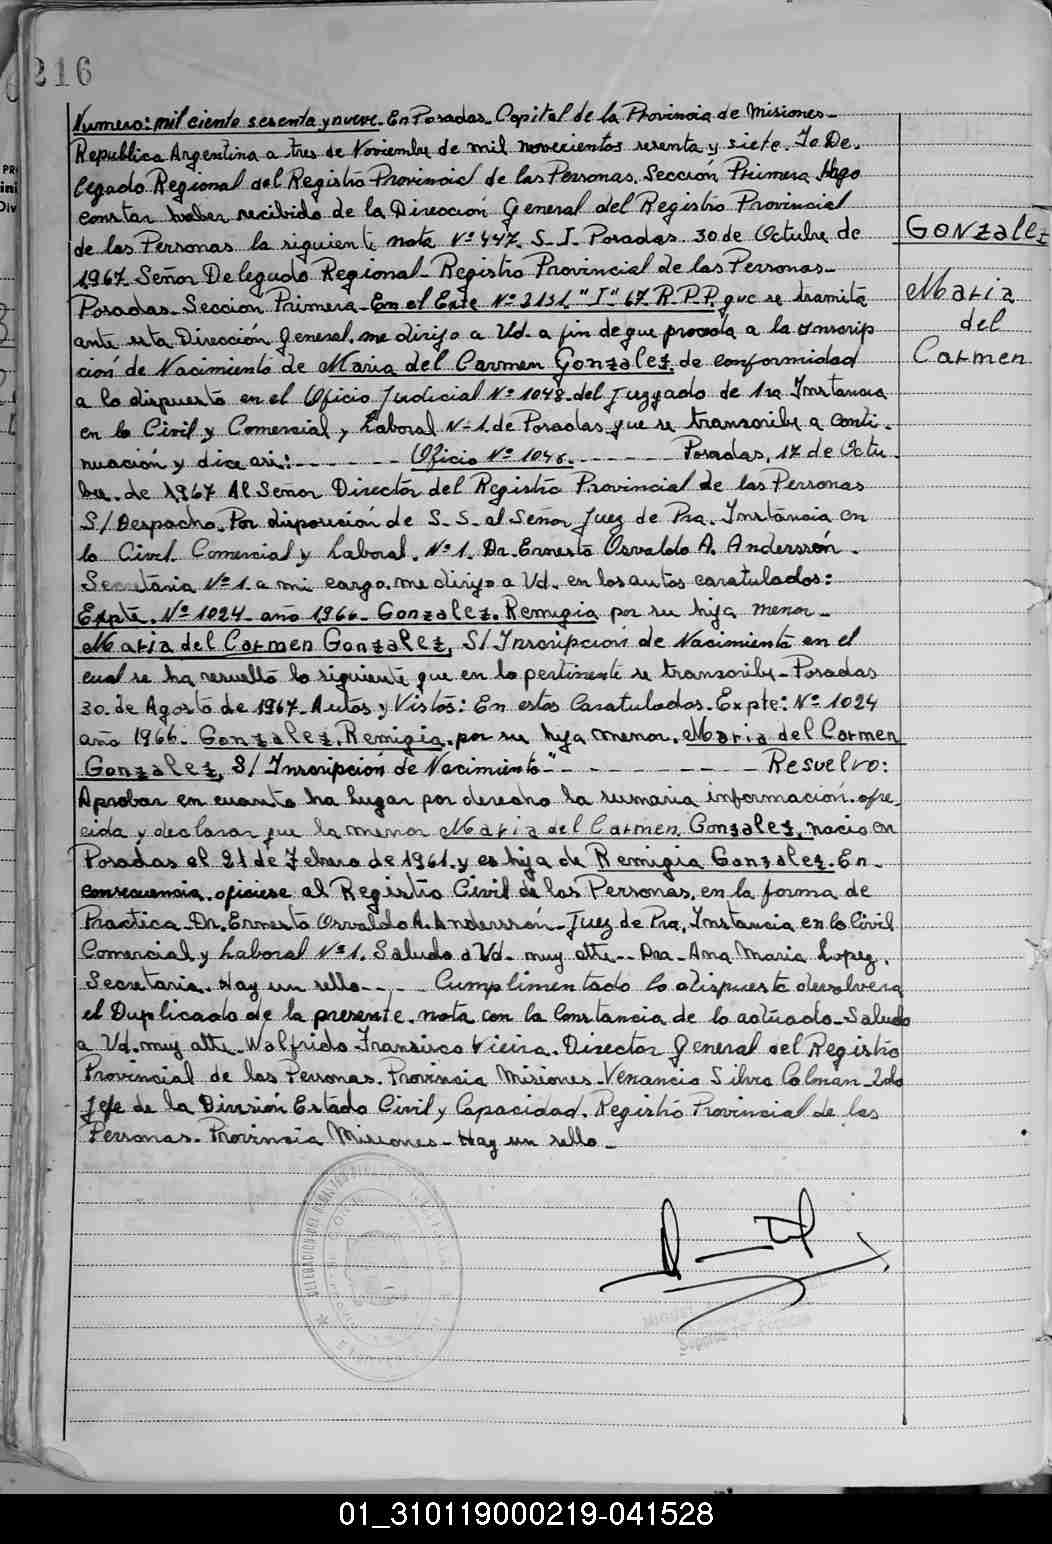 216
Numero: mil ciento sesenta y nueve. En Posadas. Capital de la Provincia de Misiones-
Republica Argentina a tres de Noviembre de mil novecientos sesenta y siete. Yo De-
legado Regional del Registro Provincial de las Personas. Sección Primera Hago
constar haber recibido de la Dirección General del Registro Provincial
de las Personas la siguiente nota Nº 447. S-I. Posadas 30 de Octubre de
1967. Señor Delegado Regional- Registro Provincial de las Personas-
Posadas. Seccion Primera- En el Exte Nº 2131 "I" 67. R.P.P. que se tramita
ante esta Dirección General, me dirijo a Ud. a fin de que proceda a la inscrip
ción de Nacimiento de Maria del Carmen Gonzalez, de conformidad
a lo dispuesto en el Oficio Judicial Nº 1048. del Juzgado de 1ra Instancia
en lo Civil y Comercial y Laboral Nº 1. de Posadas que se transcribe a conti-
nuación y dice asi: - - - - - - Oficio Nº 1048. - - - - - - Posadas, 17 de Octu-
bre. de 1967 Al Señor Director del Registro Provincial de las Personas
S/ Despacho. Por disposición de S.S. el Señor Juez de Pra. Instancia en
lo Civil. Comercial y Laboral. Nº 1. Dr. Ernesto Osvaldo A. Anderssón.
Secretaria Nº 1. a mi cargo. me dirijo a Ud. en los autos caratulados:
Expte. Nº 1024 año 1966- Gonzalez. Remigia por su hija menor-
Maria del Carmen Gonzalez, S/ Inscripción de Nacimiento en el
cual se ha resuelto lo siguiente que en lo pertinente se transcribe- Posadas
30. de Agosto de 1967. Autos y Vistos: En estos Caratulados. Expte: Nº 1024
año 1966. Gonzalez, Remigia. por su hija menor. Maria del Carmen
Gonzalez, S/ Inscripción de Nacimiento" - - - - - - - Resuelvo:
Aprobar en cuanto ha lugar por derecho la sumaria información. ofre-
cida y declarar que la menor Maria del Carmen Gonzalez, nacio en
Posadas el 21 de Febrero de 1961. y es hija de Remigia Gonzalez. En-
consecuencia. oficiese al Registro Civil de las Personas, en la forma de
Practica- Dr. Ernesto Osvaldo A. Anderssón- Juez de Pra. Instancia en lo Civil
Comercial y Laboral Nº 1. Saludo a Ud. muy atte-- Dra- Ana Maria Lopez.
Secretaria. Hay un sello - - - - Cumplimentado lo dispuesto devolvera
el Duplicado de la presente nota con la Constancia de lo actuado- Saludo
a Ud. muy atte- Walfrido Fransisco Vieira. Director General del Registro
Provincial de las Personas. Provincia Misiones- Venancio Silvio Colman- 2do
Jefe de la División Estado Civil y Capacidad. Registro Provincial de las
Personas- Provincia Misiones- Hay un sello-
Gonzalez
Maria
del
Carmen
01_310119000219-041528